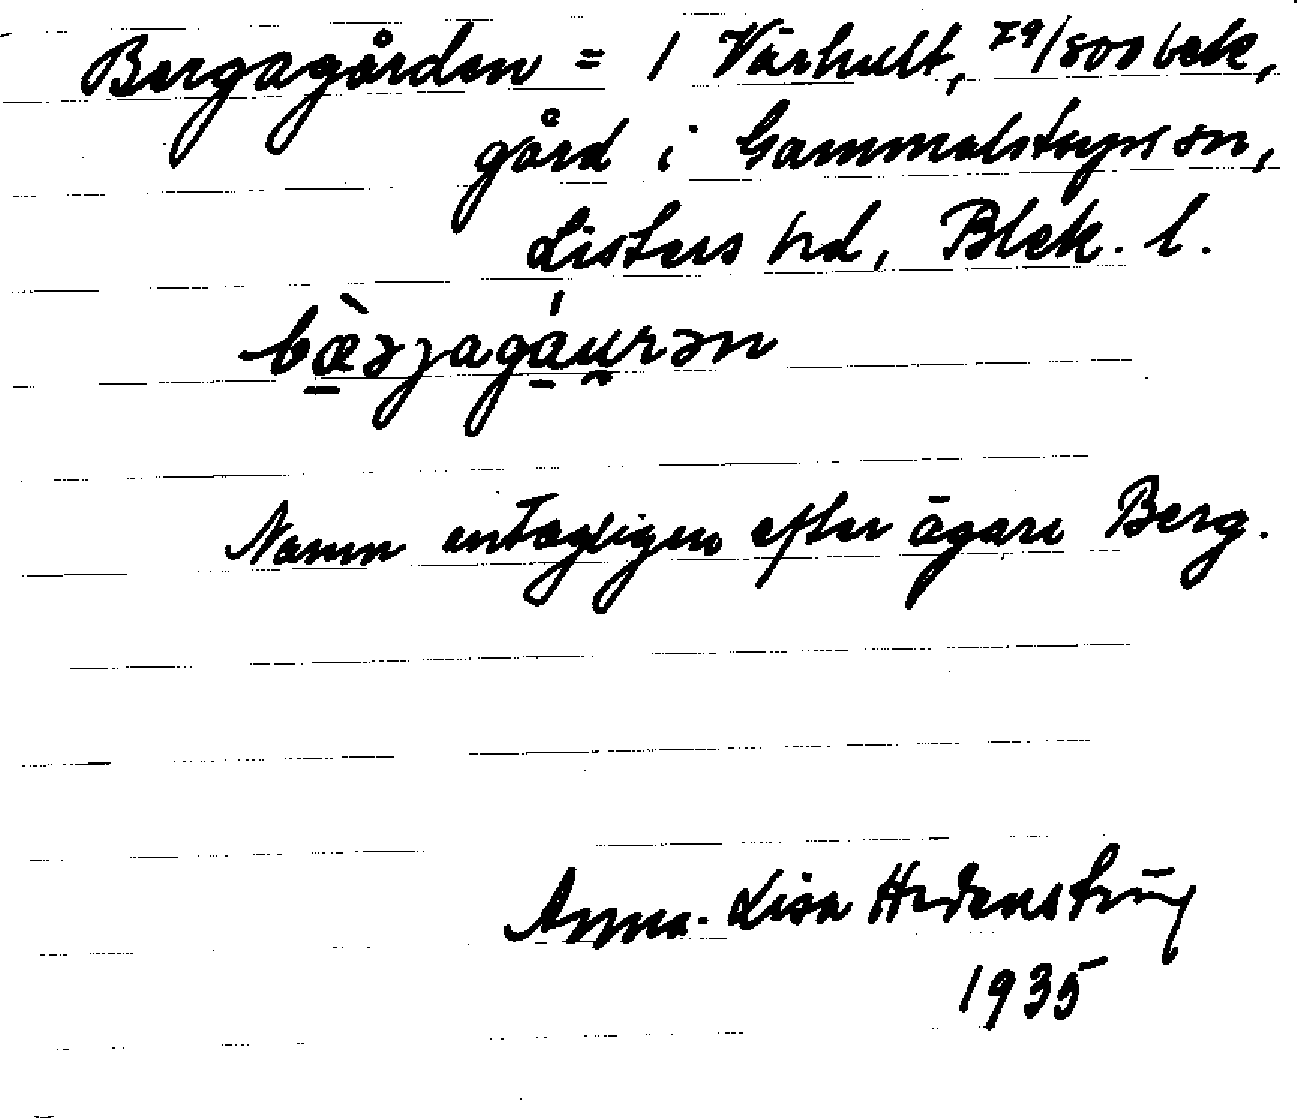 Bergagården = 1 Värhult, 79/800 bek,
gård i Gammalstorps sn,
Listers hd, Blek. l.
Namn antagligen efter ägare Berg.
Anna-Lisa Hedenström
1935